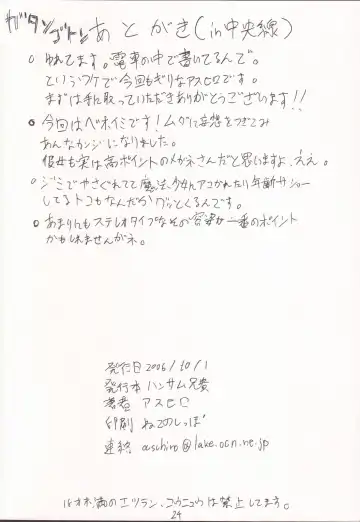 ガタンゴトン あとがき(in中央線)
○ ゆれてます。電車の中で書いてるんで。
というワケで今回もぎりなアスヒロです。
まずは手に取っていただきありがとうございます!!
○ 今回はベホイミです!ムダに妄想をつぎこみ
あんなカンジになりました。
彼女も実は高ポイントのメガネさんだと思いますよ、ええ。
○ ジミでやさぐれてて魔法少女
してるトコもなんだかグッとくるんです。
○ あまりにもステレオタイプなその容姿が一番のポイント
かもしれませんがネ。
発行日 2006/10/1
発行本 ハンサム兄貴
著者 アスヒロ
印刷 ねこのしっぽ
連絡 aschiro@lake.ocn.ne.jp
18才未満のエツラン、コウニュウは禁止してます。
24